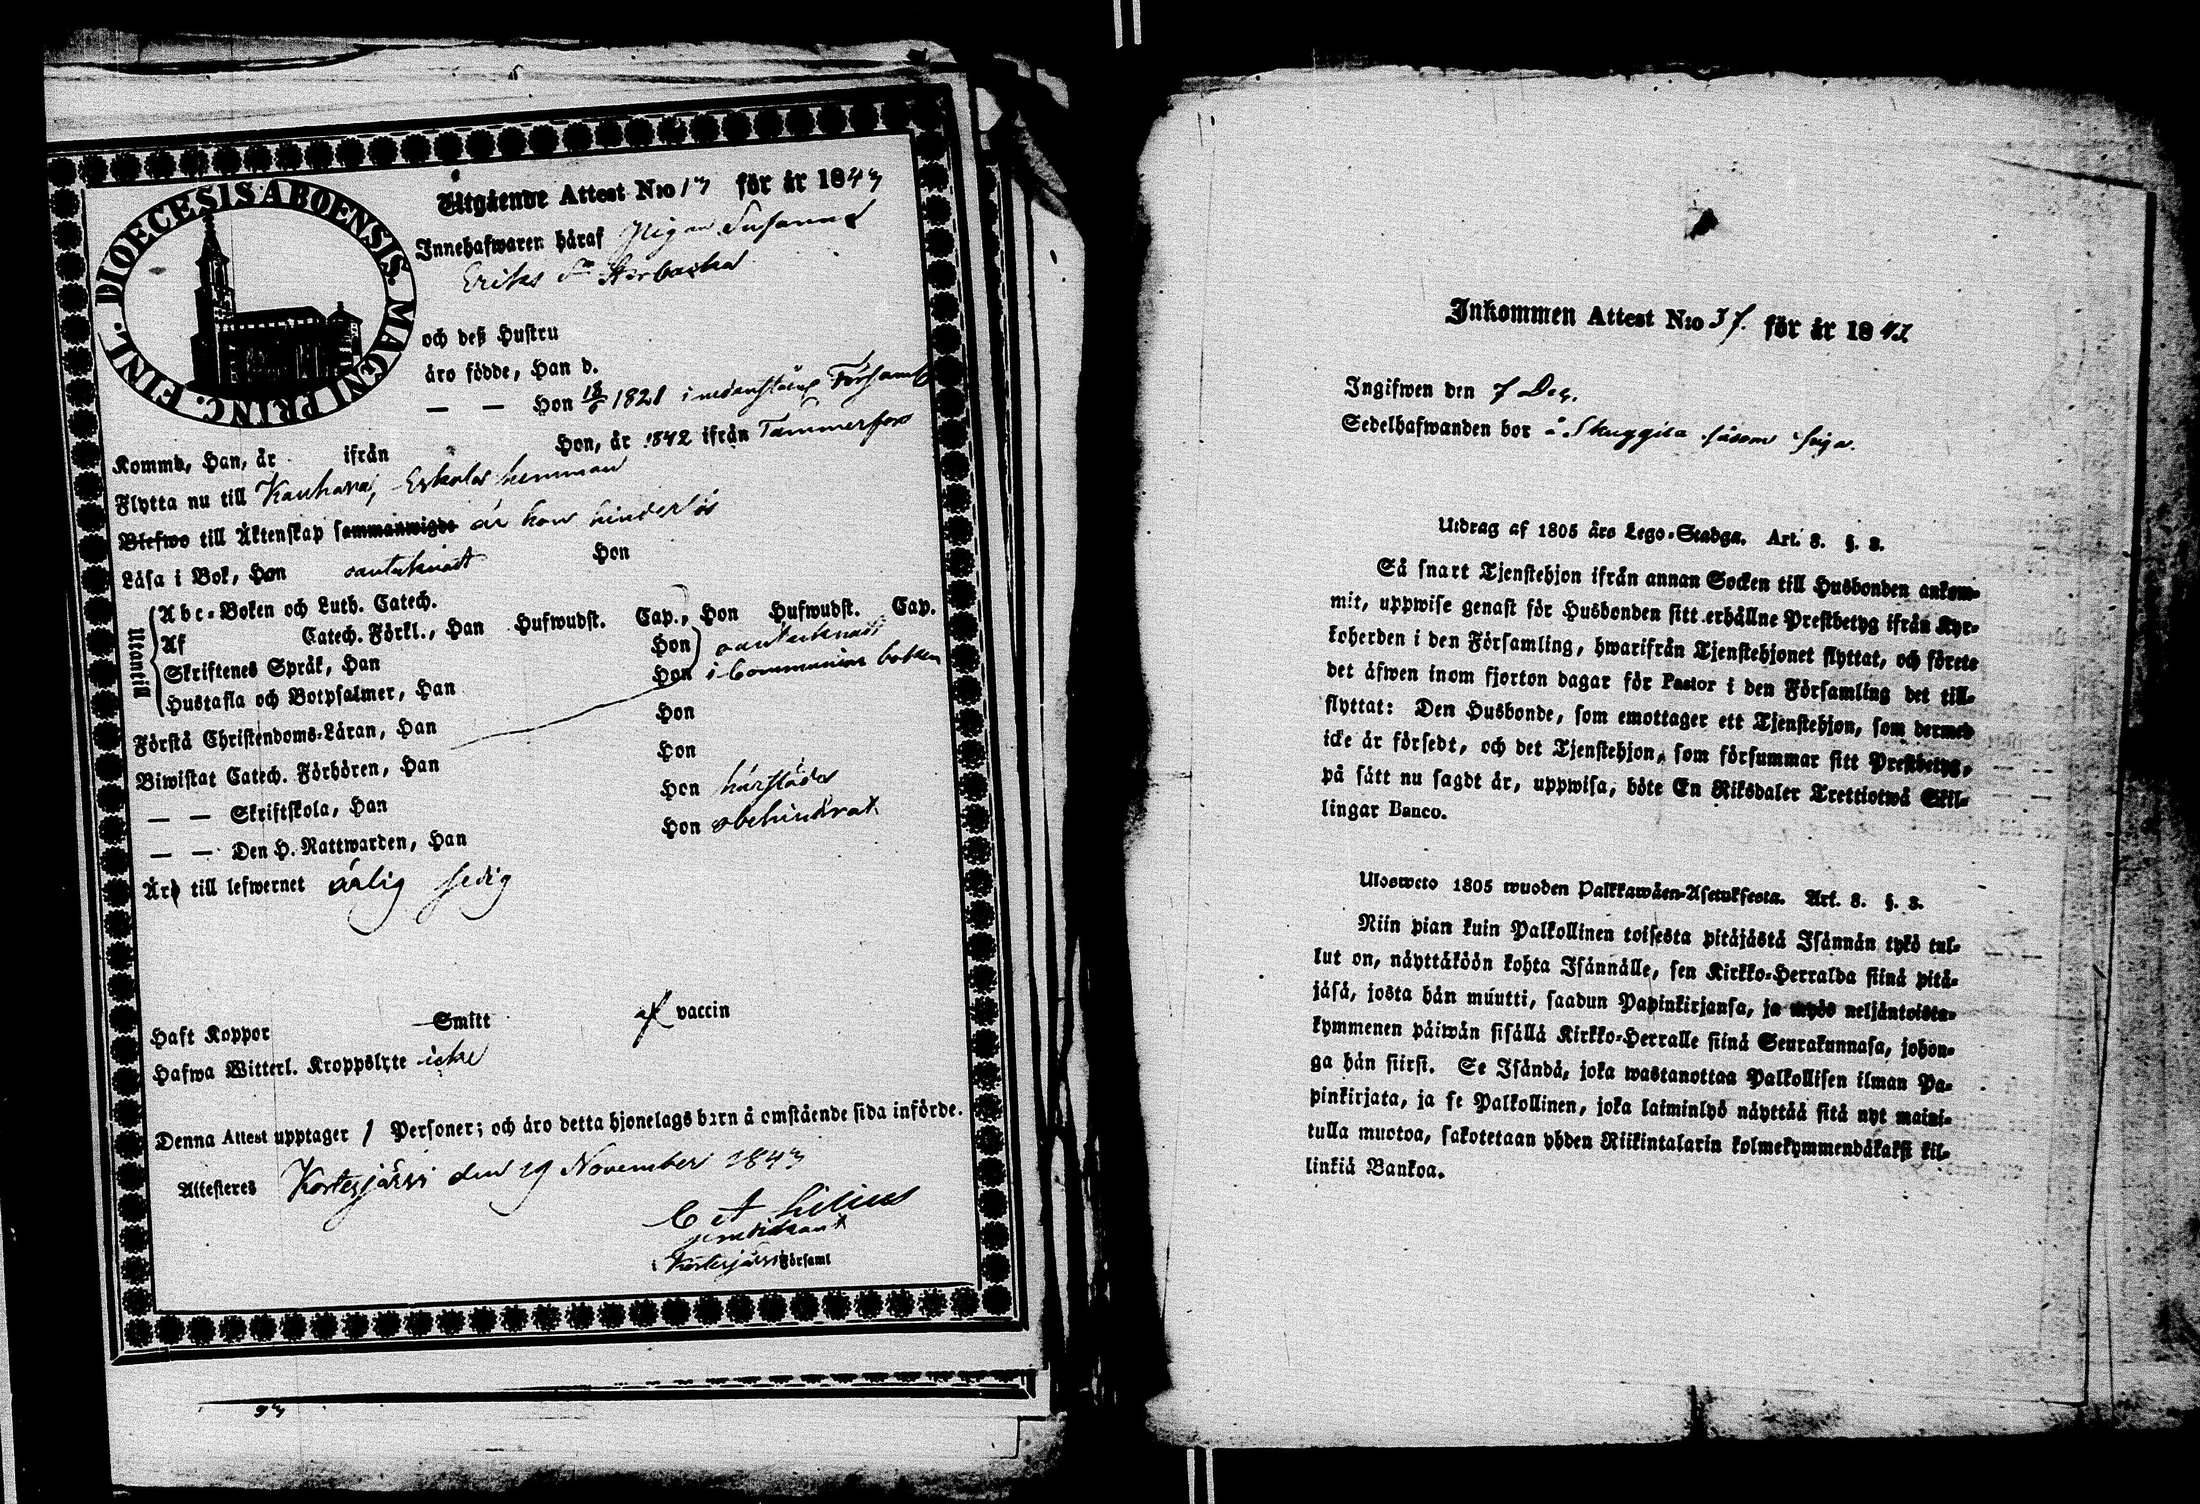 DIOECESIS ABOENSIS. MAGNI PRINC. FINL.
Utgående Attest N:o 13 för år 1843
Innehafwaren håraf Pigan Susanna
Eriks Dr
och deß Hustru
äro födde, Han d.
— — Hon 18/6 1821 i nedanstående Församl
Kommo, Han, år ifrån Hon, år 1842 ifrån Tammerfors
Flytta nu till Kauhava, Eskolas hemman
Blefwo till Äktenskap sammanwigde är hon hinderlös
Läsa i Bok, Han oanteknadt Hon
Utantill
Abc-Boken och Luth. Catech.
Af Catech. Förkl., Han Hufwudst. Cap., Hon Hufwudst. Cap.
Skriftenes Språk, Han Hon oanteknadt
Hustafla och Botpsalmer, Han Hon i Communion boken
Förstå Christendoms-Läran, Han Hon
Biwistat Catech. Förhören, Han Hon
— — Skriftskola, Han Hon härstädes
— — Den H. Nattwarden, Han Hon obehindrat
Äro till lefwernet ärlig sedig
Haft Koppor Smitt af vaccin
Hafwa Witterl. Kroppslyte icke
Denna Attest upptager 1 Personer; och äro detta hjonelags barn å omstående sida införde.
Attesteres Kortesjärvi den 29 November 1843
C A Lilius
predikant
i Kortesjärvi Församl
Inkommen Attest N:o 37. för år 1843
Ingifwen den 7 Dec.
Sedelhafwanden bor å Skuggila såsom piga.
Utdrag af 1805 års Lego-Stadga. Art. 8. §. 8.
Så snart Tjenstehjon ifrån annan Socken till Husbonden ankom-
mit, uppwise genast för Husbonden sitt erhållne Prestbetyg ifrån Kyr-
koherden i den Församling, hwarifrån Tjenstehjonet flyttat, och förete
det äfwen inom fjorton dagar för Pastor i den Församling det till-
flyttat: Den Husbonde, som emottager ett Tjenstehjon, som dermed
icke är försedt, och det Tjenstehjon, som försummar sitt Prestbetyg,
på sätt nu sagdt är, uppwisa, böte En Riksdaler Trettiotwå Skil-
lingar Banco.
Ulosweto 1805 wuoden Palkkawäen-Asetuksesta. Art. 8. §. 8.
Niin pian kuin Palkollinen toisesta pitäjästä Isännän tykö tul-
lut on, näyttäköön kohta Isännälle, sen Kirkko-Herralda siinä pitä-
jäsä, josta hän muutti, saadun Papinkirjansa, ja myös neljäntoista-
kymmenen päiwän sisällä Kirkko-Herralle siinä Seurakunnasa, johon-
ga hän siirsi. Se Isändä, joka wastanottaa Palkollisen ilman Pa-
pinkirjata, ja se Palkollinen, joka laiminlyö näyttää sitä nyt maini-
tulla muotoa, sakotetaan yhden Riikintalarin kolmekymmendäkaksi kil-
linkiä Bankoa.